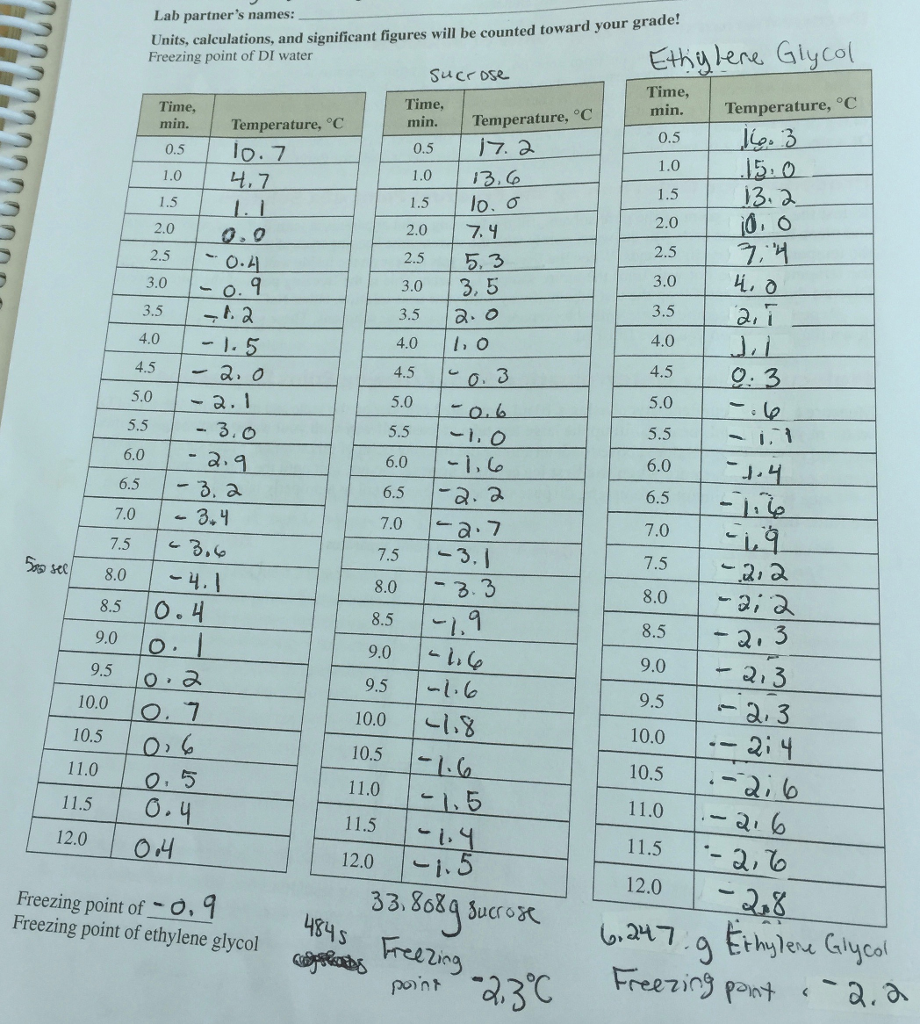 Lab partner's names:
Units, calculations, and significant figures will be counted toward your grade!
Freezing point of DI water
Sucrose
Ethylene Glycol
Time, min. Temperature, °C
0.5 10.7
1.0 4.7
1.5 1.1
2.0 0.0
2.5 -0.4
3.0 -0.9
3.5 -1.2
4.0 -1.5
4.5 -2.0
5.0 -2.1
5.5 -3.0
6.0 -2.9
6.5 -3.2
7.0 -3.4
7.5 -3.6
8.0 -4.1
8.5 0.4
9.0 0.1
9.5 0.2
10.0 0.7
10.5 0.6
11.0 0.5
11.5 0.4
12.0 0.4
500 sec
Time, min. Temperature, °C
0.5 17.2
1.0 13.6
1.5 10.0
2.0 7.4
2.5 5.3
3.0 3.5
3.5 2.0
4.0 1.0
4.5 -0.3
5.0 -0.6
5.5 -1.0
6.0 -1.6
6.5 -2.2
7.0 -2.7
7.5 -3.1
8.0 -3.3
8.5 -1.9
9.0 -1.6
9.5 -1.6
10.0 -1.8
10.5 -1.6
11.0 -1.5
11.5 -1.4
12.0 -1.5
Time, min. Temperature, °C
0.5 16.3
1.0 15.0
1.5 13.2
2.0 10.0
2.5 7.4
3.0 4.0
3.5 2.1
4.0 1.1
4.5 0.3
5.0 -.6
5.5 -1.1
6.0 -1.4
6.5 -1.6
7.0 -1.9
7.5 -2.2
8.0 -2.2
8.5 -2.3
9.0 -2.3
9.5 -2.3
10.0 -2.4
10.5 -2.6
11.0 -2.6
11.5 -2.6
12.0 -2.8
Freezing point of -0.9
Freezing point of ethylene glycol
484s
33.868g Sucrose
Freezing
point -2.3°C
6.247 g Ethylene Glycol
Freezing point -2.2